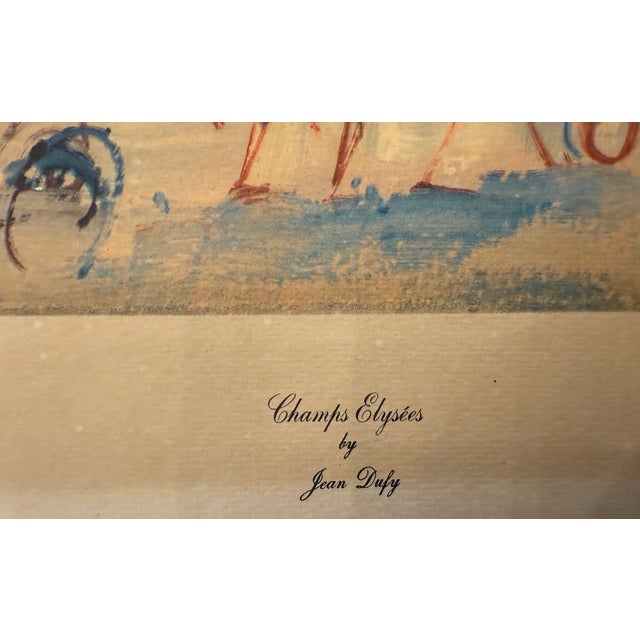 Champs Elysées
by
Jean Dufy